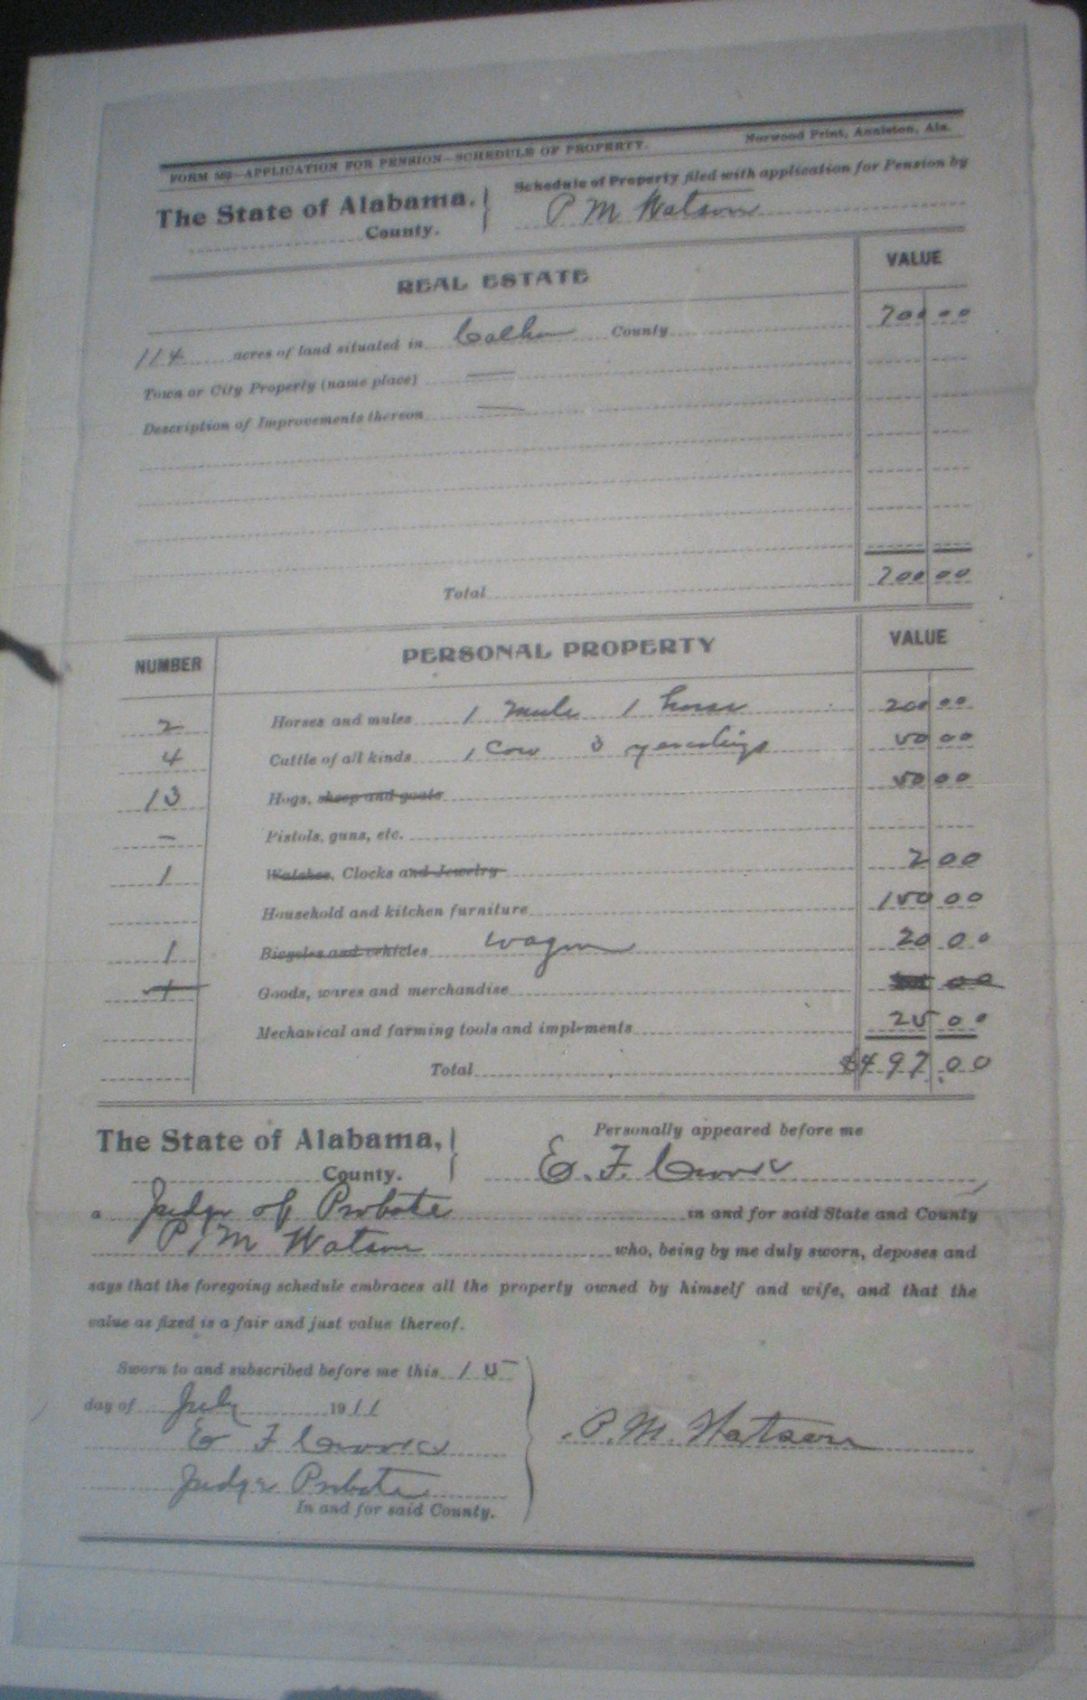 FORM APPLICATION FOR PENSION—SCHEDULE OF PROPERTY. Norwood Print, Anniston, Ala.
The State of Alabama, Schedule of Property filed with application for Pension by
County. P M Watson
REAL ESTATE VALUE
114 acres of land situated in Calhoun County 700 00
Town or City Property (name place) —
Description of Improvements thereon —
Total 700 00
NUMBER PERSONAL PROPERTY VALUE
2 Horses and mules 1 mule 1 horse 200 00
4 Cattle of all kinds 1 Cow 3 yearlings 50 00
13 Hogs, sheep and goats 50 00
— Pistols, guns, etc.
1 Watches, Clocks and Jewelry 2 00
Household and kitchen furniture 150 00
1 Bicycles and vehicles wagon 20 00
1 Goods, wares and merchandise 00
Mechanical and farming tools and implements 25 00
Total $497.00
The State of Alabama, Personally appeared before me
County. E. F.
a Judge of Probate in and for said State and County
P M Watson who, being by me duly sworn, deposes and
says that the foregoing schedule embraces all the property owned by himself and wife, and that the
value as fixed is a fair and just value thereof.
Sworn to and subscribed before me this 15
day of July 1911
E F
P. M. Watson
Judge Probate
In and for said County.